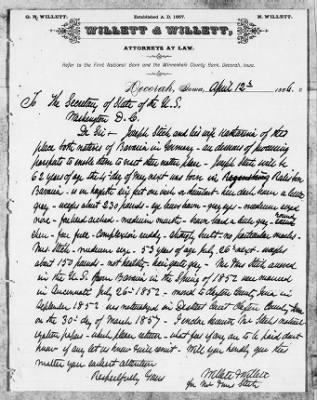 G. R. WILLETT. Established A. D. 1857. N. WILLETT.
WILLETT & WILLETT,
ATTORNEYS AT LAW.
Refer to the First National Bank and the Winneshiek County Bank, Decorah, Iowa.
Decorah, Iowa, April 12th 188
To The Secretary of State of the U.S.
Washington D.C.
Dr Sir - Joseph and his wife of this
place both natives of Bavaria in Germany are desirous of procuring
passports to enable them to visit their native place - Joseph will be
62 years of age the 4th day of May next was born in
Bavaria - is in height six feet one inch
gray - weighs about 230 pounds - eyes - grey eyes - medium sized
nose - forehead - medium mouth - have beard a little grey round
chin - face - complexion ruddy - strongly built - no particular marks -
Mrs. medium size - 53 years of age July 26th next - weighs
about 150 pounds - not healthy - hair quite grey - arrived
in the U.S. from Bavaria in the Spring of 1852 were married
in Cincinnati July 26th 1852 - moved to Clayton County Iowa in
September 1852 - was naturalized in District Court Clayton County Iowa
on the 30th day of March 1857 - I enclose
papers - which please return - what fees if any are to be paid dont
know if any let us know & will remit - Will you kindly give this
matter your earliest attention
Respectfully Yours
Willett & Willett
for Mr and Mrs